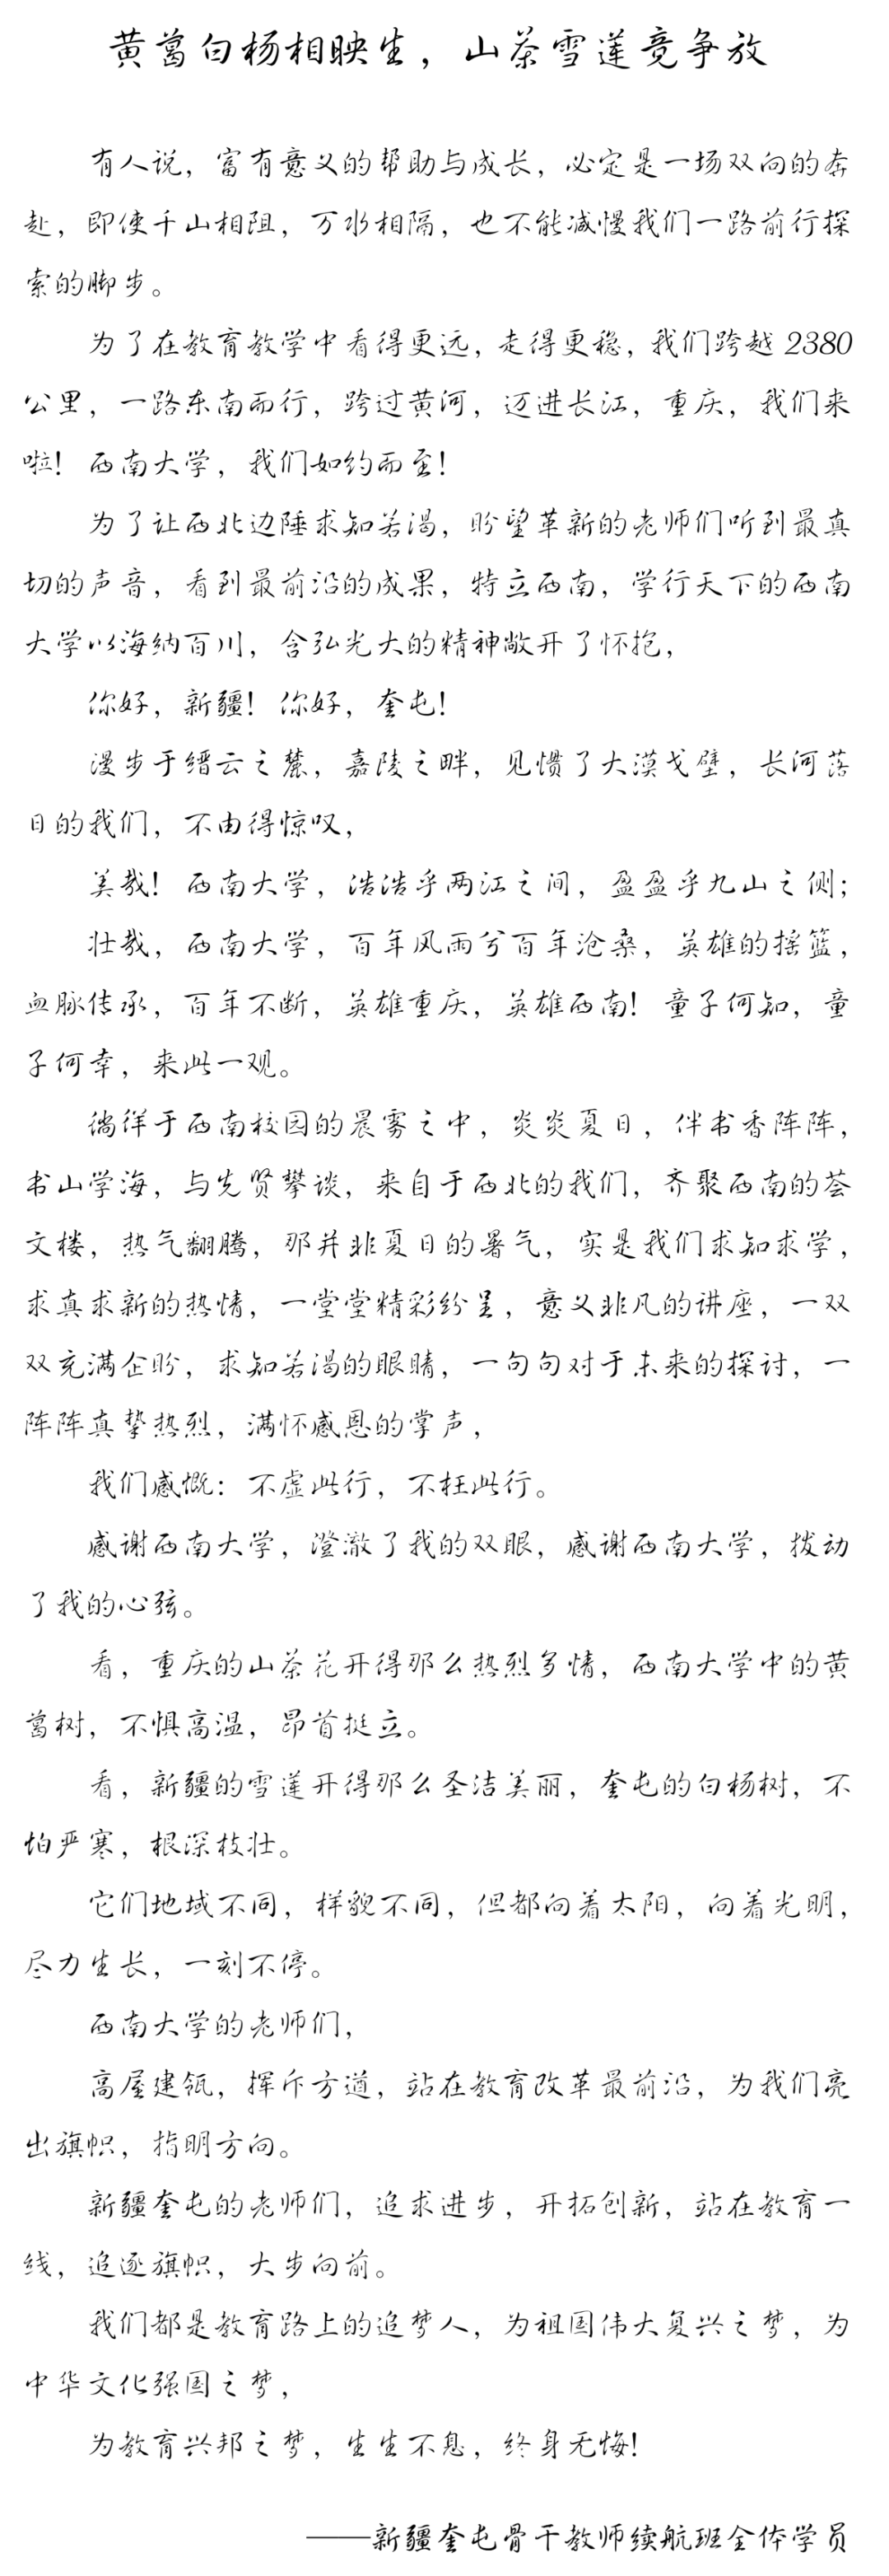 黄葛白杨相映生，山茶雪莲竞争放
有人说，富有意义的帮助与成长，必定是一场双向的奔
赴，即使千山相阻，万水相隔，也不能减慢我们一路前行探
索的脚步。
为了在教育教学中看得更远，走得更稳，我们跨越 2380
公里，一路东南而行，跨过黄河，迈进长江，重庆，我们来
啦！西南大学，我们如约而至！
为了让西北边陲求知若渴，盼望革新的老师们听到最真
切的声音，看到最前沿的成果，特立西南，学行天下的西南
大学以海纳百川，含弘光大的精神敞开了怀抱，
你好，新疆！你好，奎屯！
漫步于缙云之麓，嘉陵之畔，见惯了大漠戈壁，长河落
日的我们，不由得惊叹，
美哉！西南大学，浩浩乎两江之间，盈盈乎九山之侧；
壮哉，西南大学，百年风雨兮百年沧桑，英雄的摇篮，
血脉传承，百年不断，英雄重庆，英雄西南！童子何知，童
子何幸，来此一观。
徜徉于西南校园的晨雾之中，炎炎夏日，伴书香阵阵，
书山学海，与先贤攀谈，来自于西北的我们，齐聚西南的荟
文楼，热气翻腾，那并非夏日的暑气，实是我们求知求学，
求真求新的热情，一堂堂精彩纷呈，意义非凡的讲座，一双
双充满企盼，求知若渴的眼睛，一句句对于未来的探讨，一
阵阵真挚热烈，满怀感恩的掌声，
我们感慨：不虚此行，不枉此行。
感谢西南大学，澄澈了我的双眼，感谢西南大学，拨动
了我的心弦。
看，重庆的山茶花开得那么热烈多情，西南大学中的黄
葛树，不惧高温，昂首挺立。
看，新疆的雪莲开得那么圣洁美丽，奎屯的白杨树，不
怕严寒，根深枝壮。
它们地域不同，样貌不同，但都向着太阳，向着光明，
尽力生长，一刻不停。
西南大学的老师们，
高屋建瓴，挥斥方遒，站在教育改革最前沿，为我们亮
出旗帜，指明方向。
新疆奎屯的老师们，追求进步，开拓创新，站在教育一
线，追逐旗帜，大步向前。
我们都是教育路上的追梦人，为祖国伟大复兴之梦，为
中华文化强国之梦，
为教育兴邦之梦，生生不息，终身无悔！
——新疆奎屯骨干教师续航班全体学员